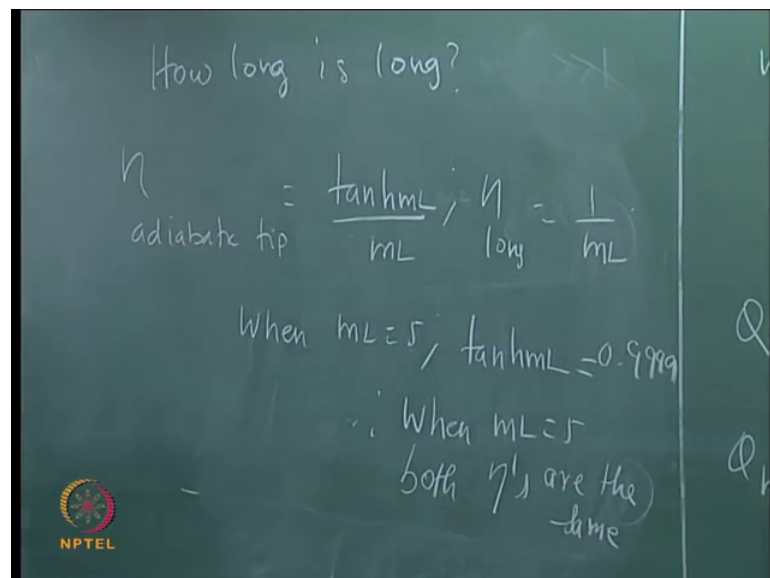 How long is long?
η adiabatic tip = tanh mL / mL ; η long = 1 / mL
When mL = 5, tanh mL = 0.9999
∴ When mL = 5
both η's are the
same
Q
Q
NPTEL